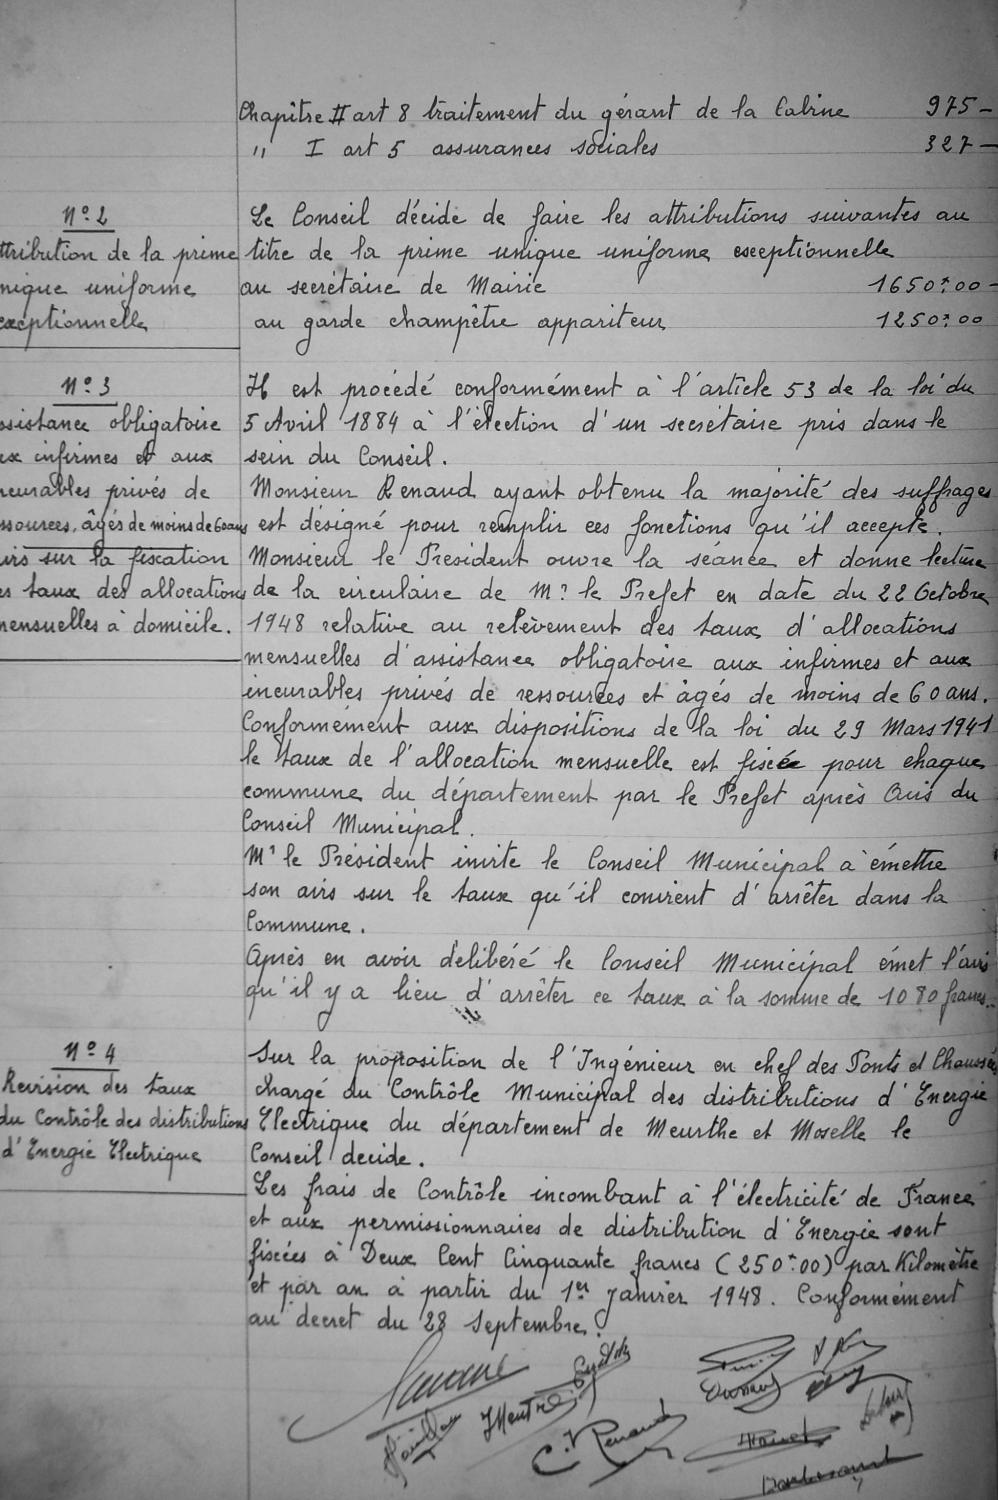 Chapître II art 8 traitement du gérant de la Cabine 975 -
" I art 5 assurances sociales 327 -
Nº 2
ttribution de la prime
nique uniforme
exceptionnelle
Le Conseil décide de faire les attributions suivantes au
titre de la prime unique uniforme exceptionnelle
au secrétaire de Mairie 1650f00 -
au garde champêtre appariteur 1250f00
Nº 3
ssistance obligatoire
ux infirmes et aux
ncurables privés de
ssources, âgés de moins de 60 ans
vis sur la fixation
es taux des allocations
mensuelles à domicile.
Il est procédé conformément à l'article 53 de la loi du
5 Avril 1884 à l'élection d'un secrétaire pris dans le
sein du Conseil.
Monsieur Renaud ayant obtenu la majorité des suffrages
est désigné pour remplir ces fonctions qu'il accepte.
Monsieur le President ouvre la séance et donne lecture
de la circulaire de Mr le Prefet en date du 22 Octobre
1948 relative au relèvement des taux d'allocations
mensuelles d'assistance obligatoire aux infirmes et aux
incurables privés de ressources et âgés de moins de 60 ans.
Conformément aux dispositions de la loi du 29 Mars 1941
le taux de l'allocation mensuelle est fixée pour chaque
commune du département par le Prefet après Avis du
Conseil Municipal.
Mr le Président invite le Conseil Municipal à émettre
son avis sur le taux qu'il convient d'arrêter dans la
Commune.
Après en avoir délibéré le Conseil Municipal émet l'avis
qu'il y a lieu d'arrêter ce taux à la somme de 1080 francs.
Nº 4
Revision des taux
du Contrôle des distributions
d'Energie Electrique
Sur la proposition de l'Ingénieur en chef des Ponts et Chaussées
chargé du Contrôle Municipal des distributions d'Energie
Electrique du département de Meurthe et Moselle le
Conseil decide.
Les frais de Contrôle incombant à l'électricité de France
et aux permissionnaires de distribution d'Energie sont
fixées à Deux Cent Cinquante francs (250f00) par Kilomètre
et par an à partir du 1er Janvier 1948. Conformément
au décret du 28 Septembre.
C. Renaud